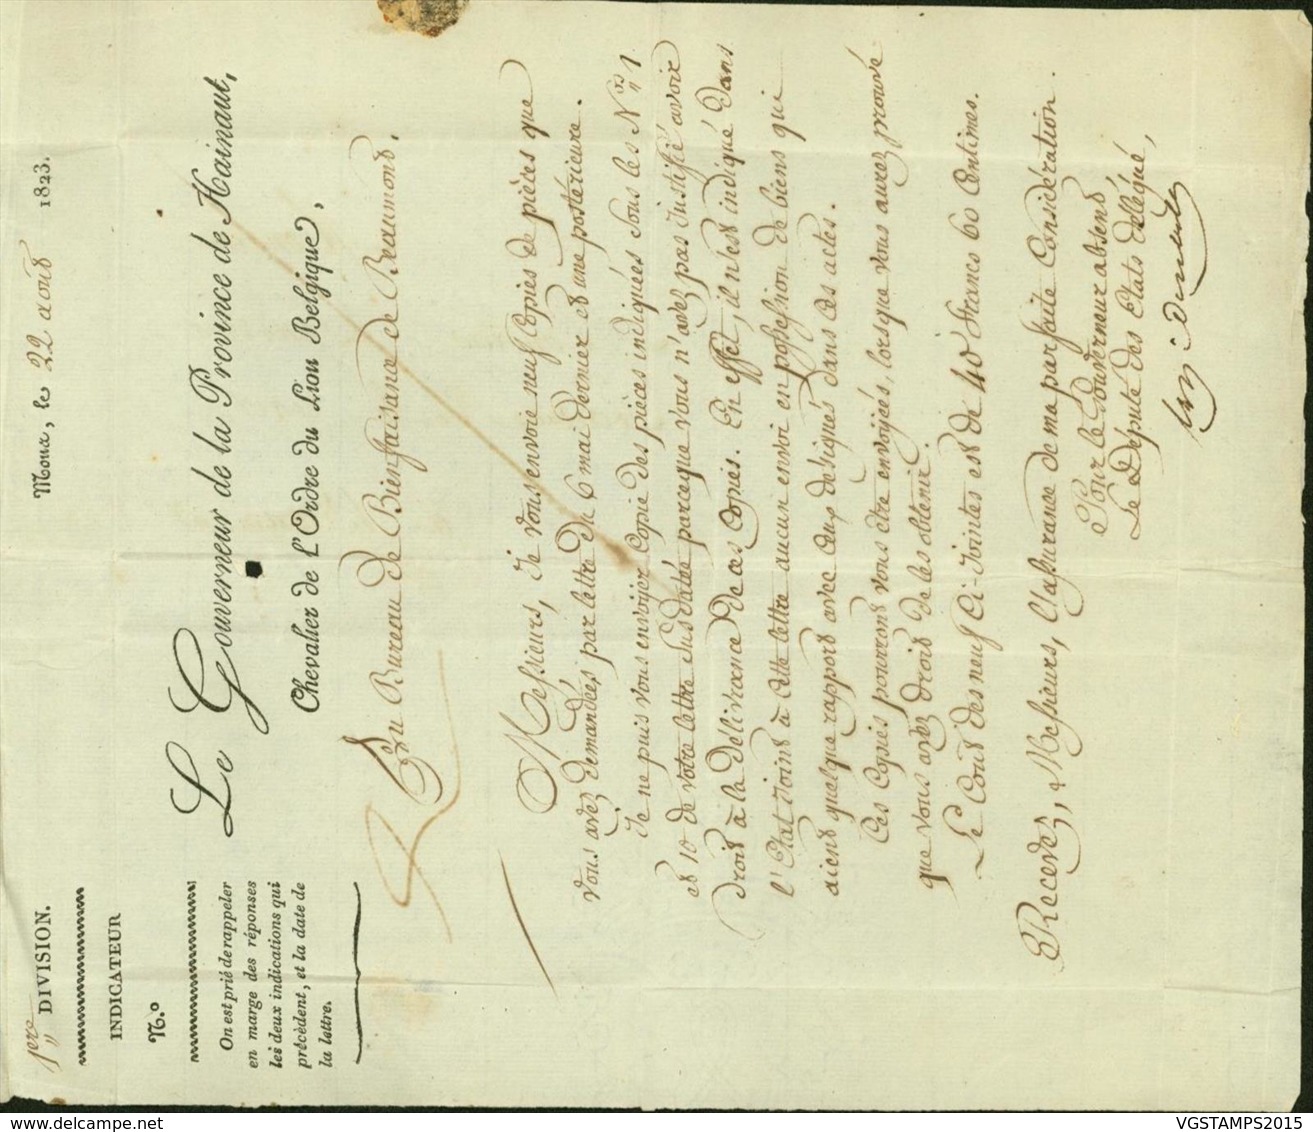 1ere DIVISION.
INDICATEUR
N.o
On est prié de rappeler
en marge des réponses
les deux indications qui
précèdent, et la date de
la lettre.
Mons, le 22 aout 1823.
Le Gouverneur de la Province de Hainaut,
Chevalier de l'Ordre du Lion Belgique,
Au Bureau de Bienfaisance de Beaumont.
Messieurs, Je vous envoie neuf Copies de pièces que
vous avez demandées par lettre du 6 mai dernier et une postérieure.
Je ne puis vous envoyer Copie des pièces indiquées sous les Nos 1
et 10 de votre lettre susdatée parceque vous n'avez pas justifié avoir
droit à la délivrance de ces Copies. En effet, il n'est indiqué dans
l'Etat joint à cette lettre aucun envoi en possession de biens qui
aient quelque rapport avec ceux désignés dans ces actes.
Ces Copies pourront vous être envoyées, lorsque vous aurez prouvé
que vous avez droit de les obtenir.
Le Cout des neuf Ci-Jointes est de 40 francs 60 Centimes.
Recevez, Messieurs, l'assurance de ma parfaite Considération.
Pour le Gouverneur absent
Le Député des Etats délégué,
VGSTAMPS2015